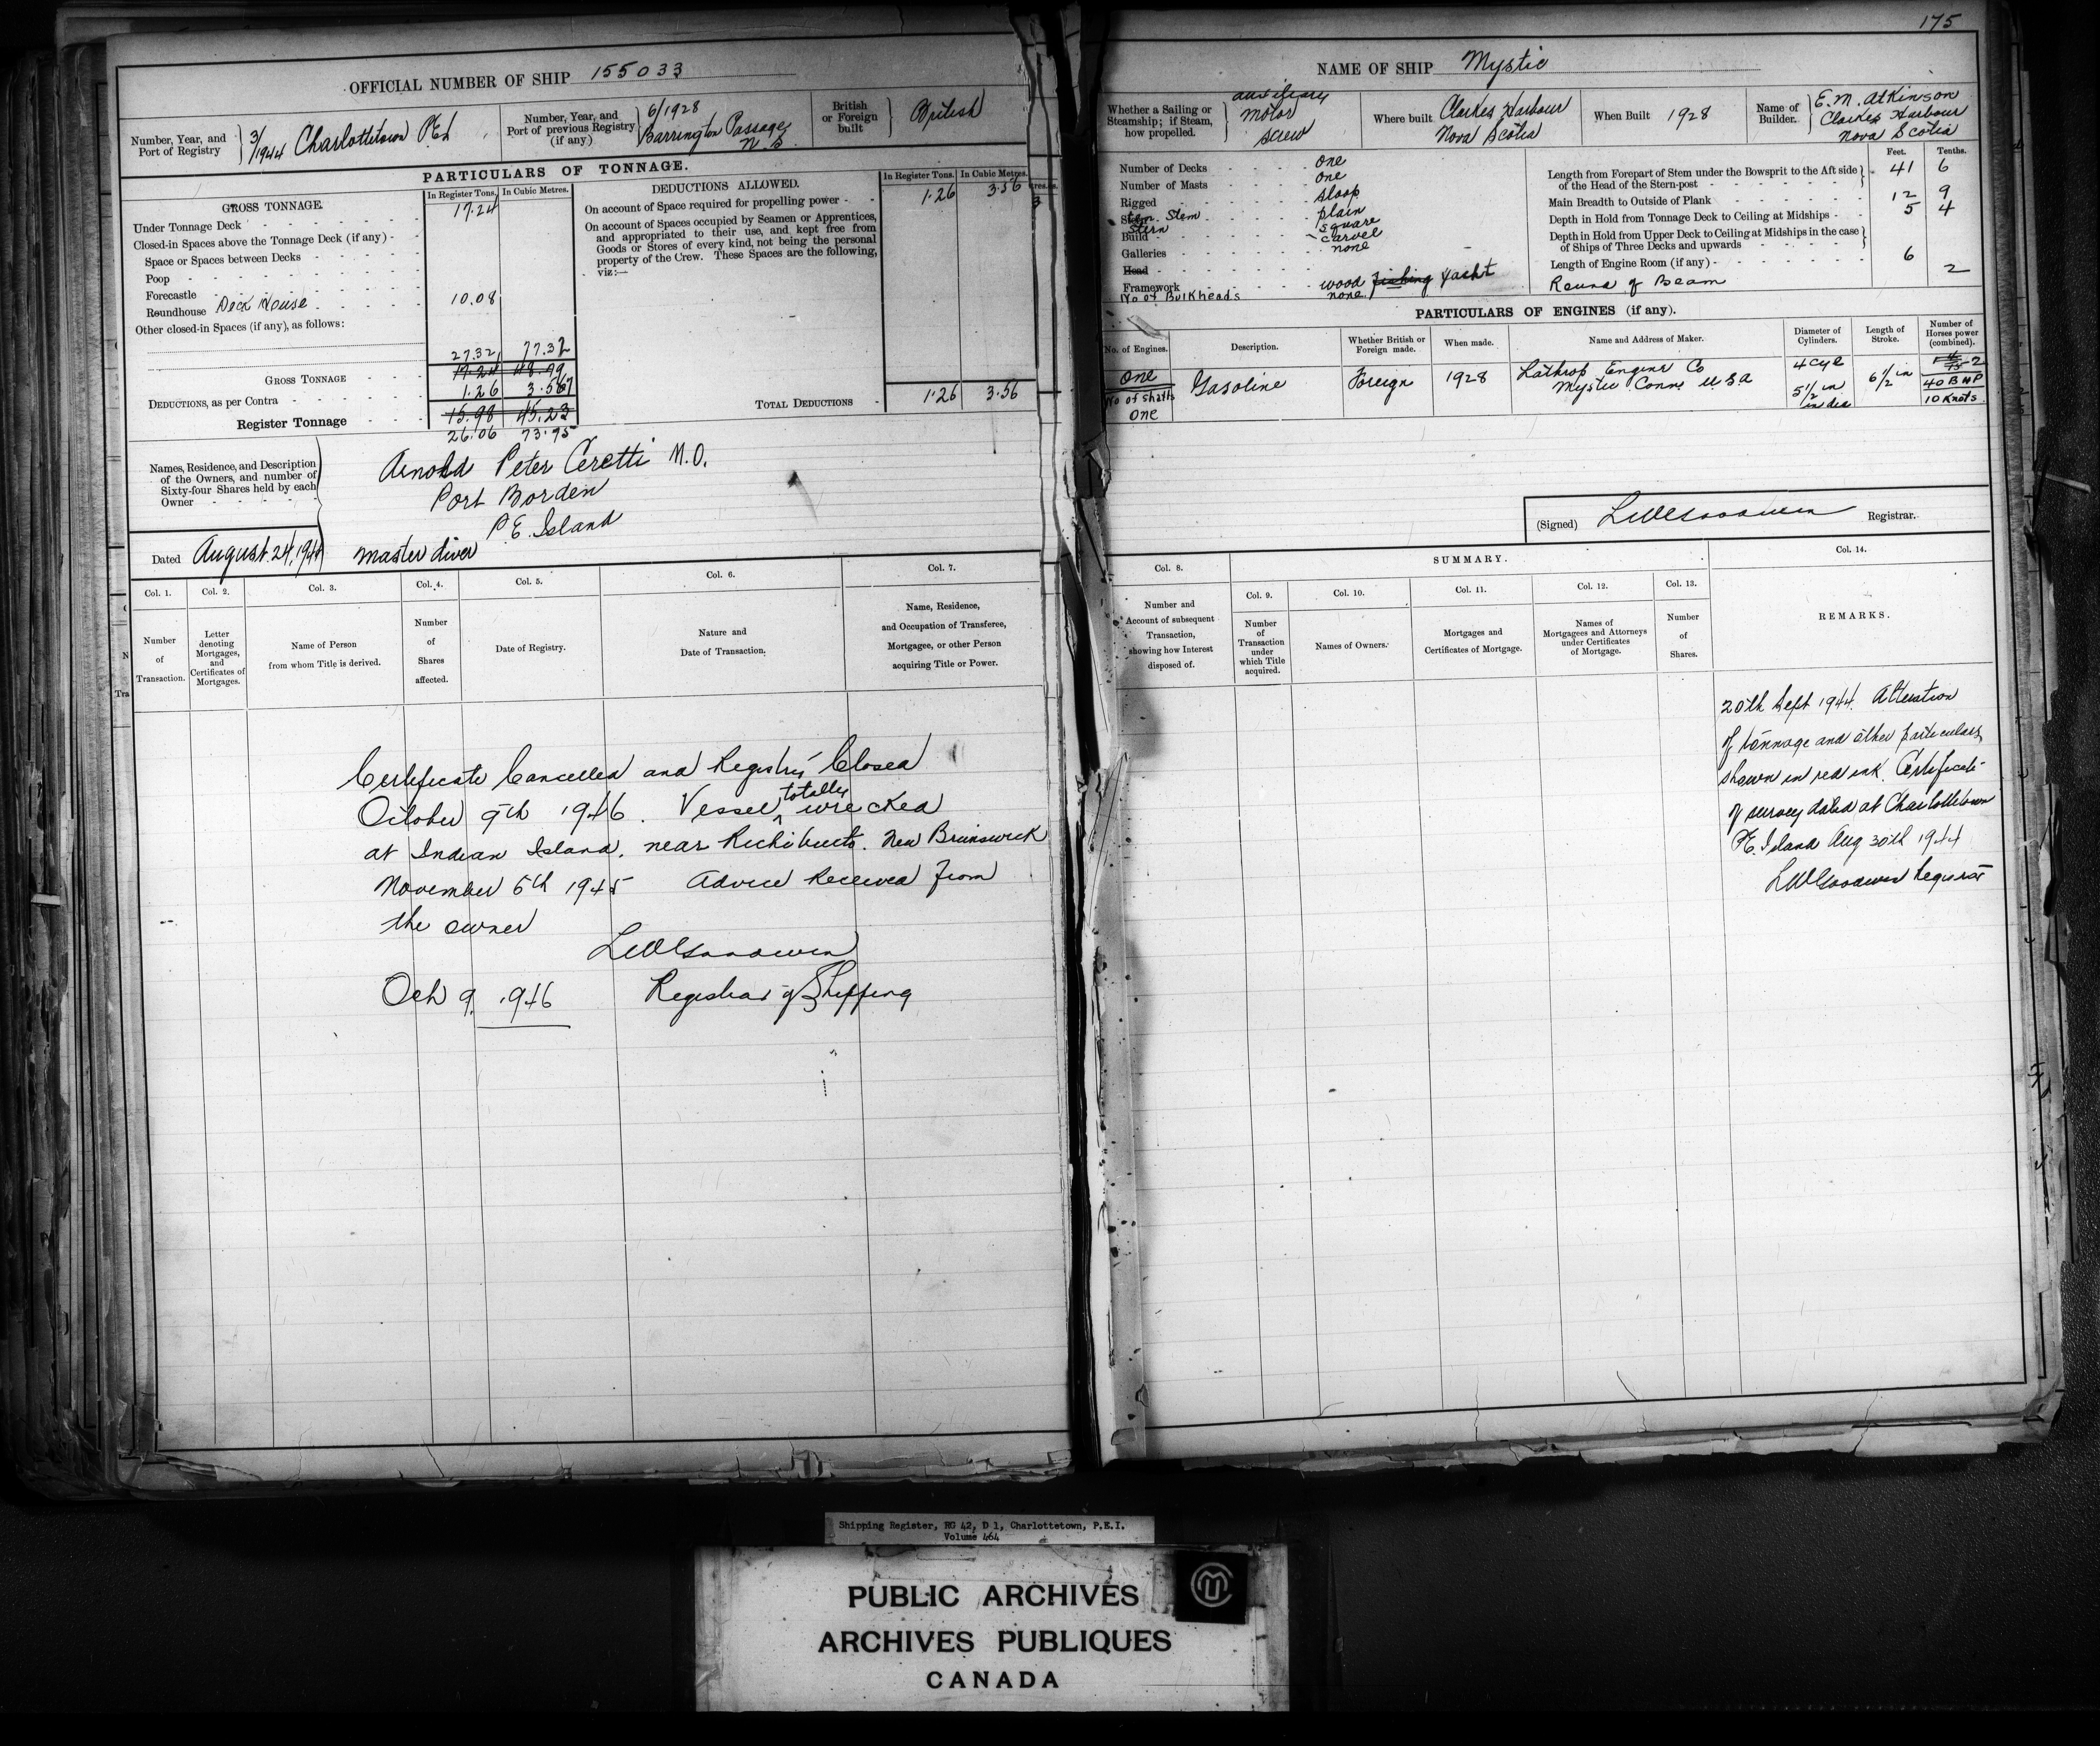 175
OFFICIAL NUMBER OF SHIP 155033
Number, Year, and Port of Registry
3/1944 Charlottetown P.E.I.
Number, Year, and Port of previous Registry (if any)
6/1928
Barrington Passage
N.S
British or Foreign built
British
PARTICULARS OF TONNAGE.
GROSS TONNAGE.
In Register Tons.
In Cubic Metres.
Under Tonnage Deck 17.24
Closed-in Spaces above the Tonnage Deck (if any)
Space or Spaces between Decks
Poop
Forecastle
Roundhouse Deck House 10.08
Other closed-in Spaces (if any), as follows:
27.32 77.32
GROSS TONNAGE 17.24 48.79
DEDUCTIONS, as per Contra 1.26 3.567
Register Tonnage 15.98 45.23
26.06 73.75
DEDUCTIONS ALLOWED.
In Register Tons.
In Cubic Metres.
On account of Space required for propelling power 1.26 3.56
On account of Spaces occupied by Seamen or Apprentices,
and appropriated to their use, and kept free from
Goods or Stores of every kind, not being the personal
property of the Crew. These Spaces are the following,
viz:—
TOTAL DEDUCTIONS 1.26 3.56
Names, Residence, and Description
of the Owners, and number of
Sixty-four Shares held by each
Owner
Arnold Peter Ceretti M.O.
Port Borden
P.E. Island
Dated August 24, 1944 Master diver
Col. 1.
Number
of
Transaction.
Col. 2.
Letter
denoting
Mortgages,
and
Certificates of
Mortgages.
Col. 3.
Name of Person
from whom Title is derived.
Col. 4.
Number
of
Shares
affected.
Col. 5.
Date of Registry.
Col. 6.
Nature and
Date of Transaction.
Col. 7.
Name, Residence,
and Occupation of Transferee,
Mortgagee, or other Person
acquiring Title or Power.
Certificate Cancelled and Registry Closed
October 9th 1946. Vessel totally wrecked
at Indian Island, near Richibucto. New Brunswick
November 6th 1945 Advice Received from
the owner
LWGoodwin
Oct 9 1946 Registrar of Shipping
NAME OF SHIP Mystic
Whether a Sailing or
Steamship; if Steam,
how propelled.
auxiliary
motor
screw
Where built
Clarkes Harbour
Nova Scotia
When Built 1928
Name of
Builder.
E. M. Atkinson
Clarkes Harbour
Nova Scotia
Number of Decks one
Number of Masts one
Rigged sloop
Stem plain
Stern square
Build carvel
Galleries none
Head
Framework wood Fishing Yacht
No of Bulkheads none
Feet. Tenths.
Length from Forepart of Stem under the Bowsprit to the Aft side
of the Head of the Stern-post 41 6
Main Breadth to Outside of Plank 12 9
Depth in Hold from Tonnage Deck to Ceiling at Midships 5 4
Depth in Hold from Upper Deck to Ceiling at Midships in the case
of Ships of Three Decks and upwards
Length of Engine Room (if any) 6
Round of Beam 2
PARTICULARS OF ENGINES (if any).
No. of Engines.
Description.
Whether British or
Foreign made.
When made.
Name and Address of Maker.
Diameter of
Cylinders.
Length of
Stroke.
Number of
Horses power
(combined).
One
No of shafts
One
Gasoline
Foreign
1928
Lathrop Engine Co
Mystic Conn U S A
4 cyl
5 1/2 in
in dia
6 1/2 in
40 B H P
10 Knots
(Signed) LWGoodwin Registrar.
Col. 8.
Number and
Account of subsequent
Transaction,
showing how Interest
disposed of.
SUMMARY.
Col. 9.
Number
of
Transaction
under
which Title
acquired.
Col. 10.
Names of Owners.
Col. 11.
Mortgages and
Certificates of Mortgage.
Col. 12.
Names of
Mortgagees and Attorneys
under Certificates
of Mortgage.
Col. 13.
Number
of
Shares.
Col. 14.
REMARKS.
20th Sept 1944. Alteration
of tonnage and other particulars
shown in red ink. Certificate
of survey dated at Charlottetown
P.E. Island Aug 30th 1944
LWGoodwin Registrar
Shipping Register, RG 42, D 1, Charlottetown, P.E.I.
Volume 464
PUBLIC ARCHIVES
ARCHIVES PUBLIQUES
CANADA